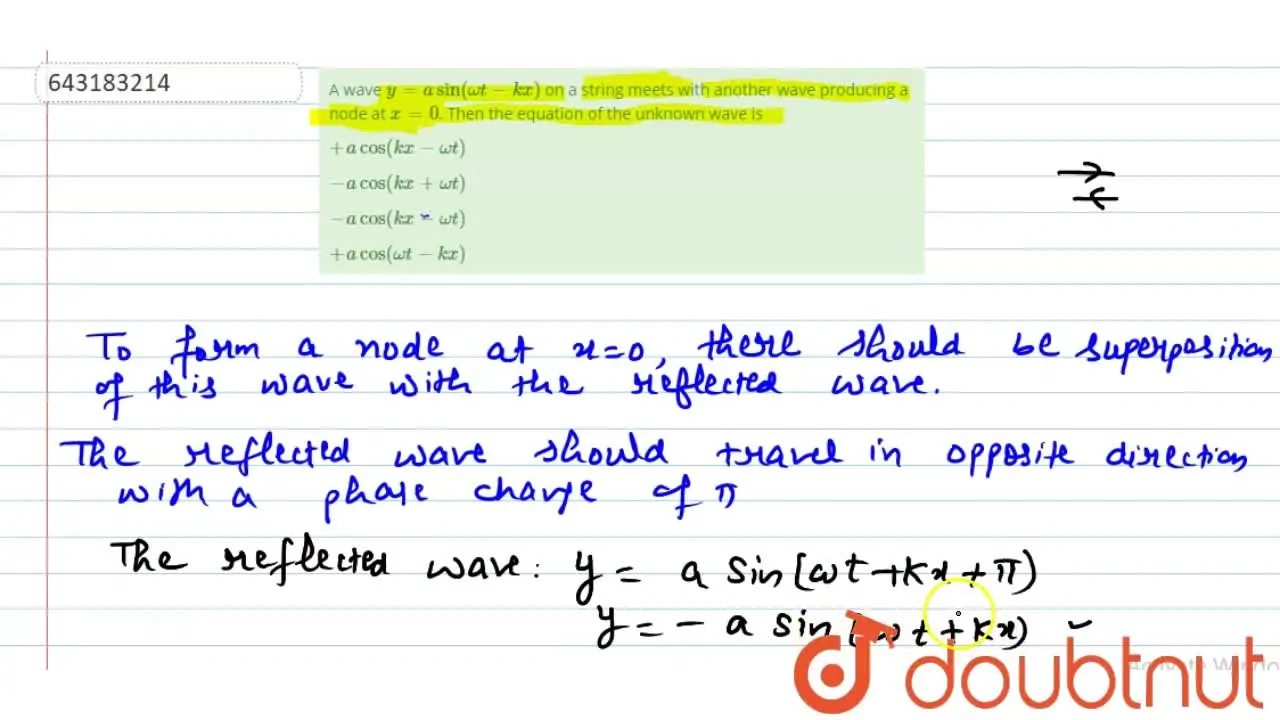 643183214
A wave y = a sin(ωt − kx) on a string meets with another wave producing a
node at x = 0. Then the equation of the unknown wave is
+a cos(kx − ωt)
−a cos(kx + ωt)
−a cos(kx − ωt)
+a cos(ωt − kx)
To form a node at x=0, there should be superposition
of this wave with the reflected wave.
The reflected wave should travel in opposite direction
with a phase change of π
The reflected wave: y = a sin(ωt+kx+π)
y = − a sin(ωt+kx)
doubtnut